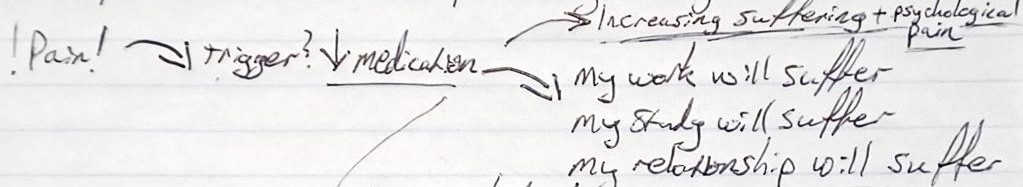 Increasing suffering + psychological
pain
! Pain! → trigger? ↓ medication
my work will suffer
my study will suffer
my relationship will suffer